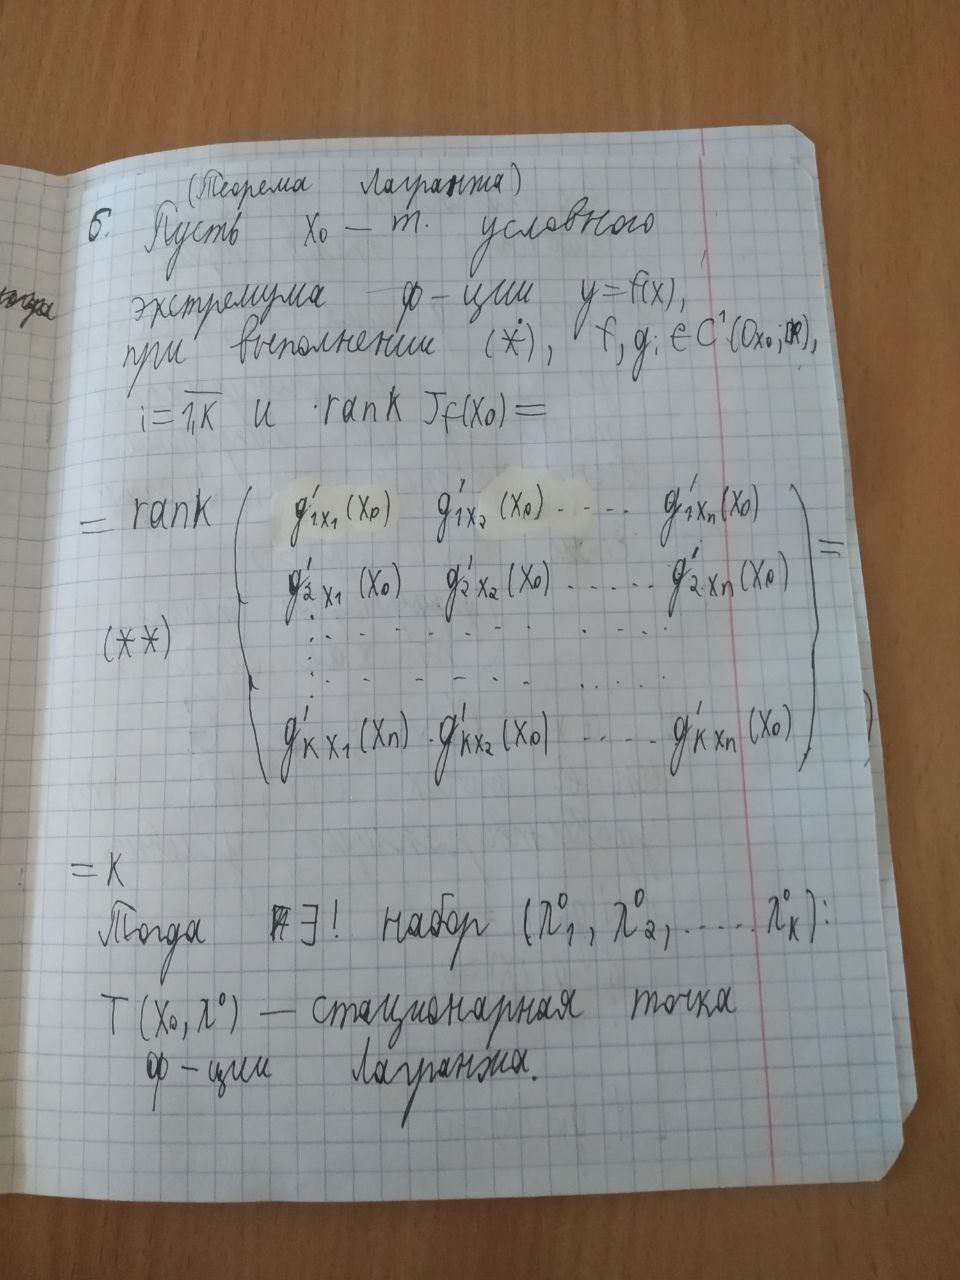 (Теорема Лагранжа)
6. Пусть x₀ – т. условного
экстремума ф-ции y=f(x),
при выполнении (*), f, gᵢ ∈ C¹(Ox₀; R),
i = 1,k и rank J_f(x₀) =
= rank ( g'₁ₓ₁(x₀) g'₁ₓ₂(x₀) ..... g'₁ₓₙ(x₀) ) =
g'₂ₓ₁(x₀) g'₂ₓ₂(x₀) ..... g'₂ₓₙ(x₀)
(**)
g'ₖₓ₁(xₙ) g'ₖₓ₂(x₀) ..... g'ₖₓₙ(x₀)
= k
Тогда ∃! набор (λ⁰₁, λ⁰₂, ..... λ⁰ₖ):
T (x₀, λ⁰) – стационарная точка
ф-ции Лагранжа.